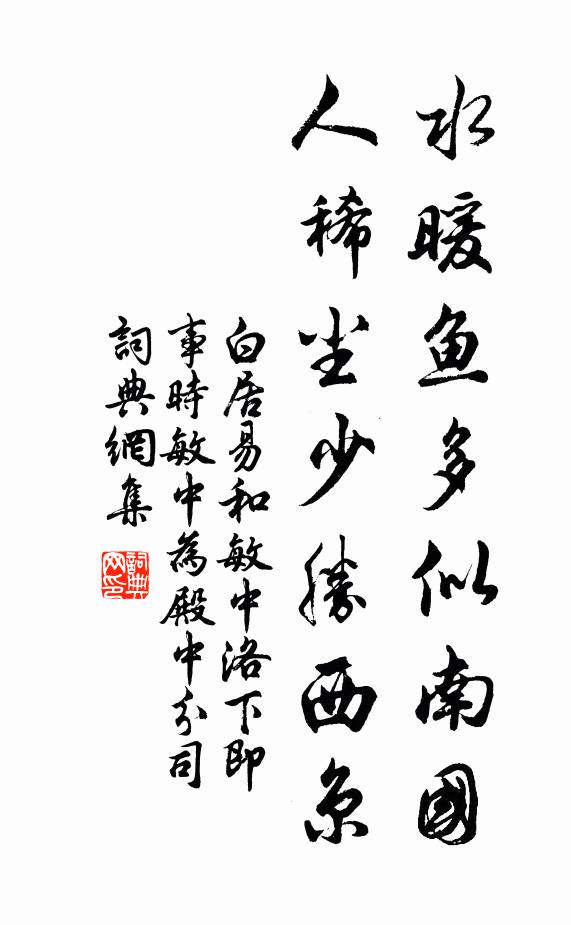 水暖鱼多似南國
人稀尘少勝西京
白居易和敏中洛下即
事時敏中為殿中分司
詞典網集
詞典
网印